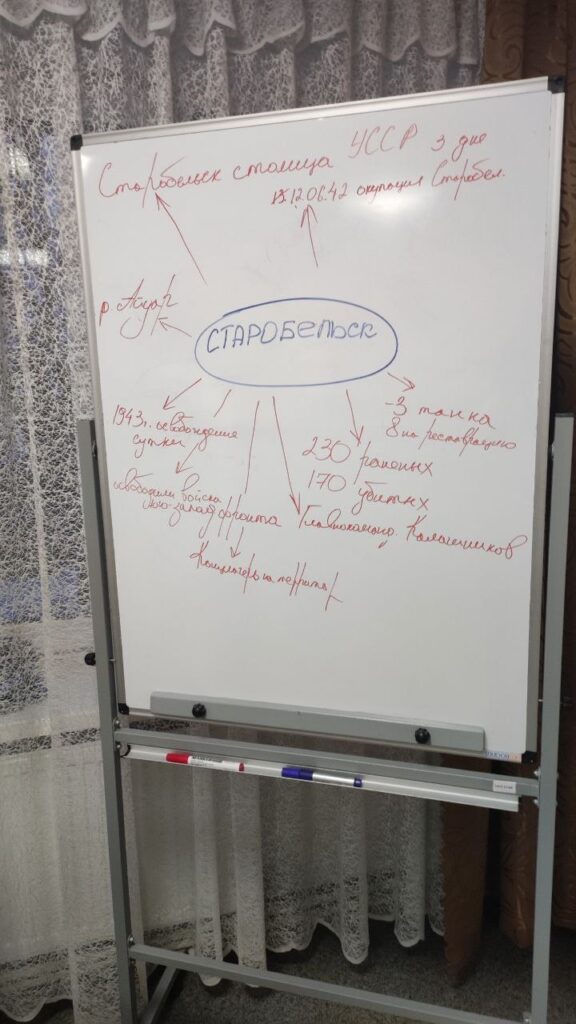 Старобельск столица УССР 3 дня
12.06.42 окупация Старобел.
р. Айдар
СТАРОБЕЛЬСК
1943г. освобождение
сутки
- 3 танка
8 на реставрацию
230 раненых
170 убитых
освободили войска
юго-запад фронта
Главнокоманд. Калашников
Концлагерь на территор